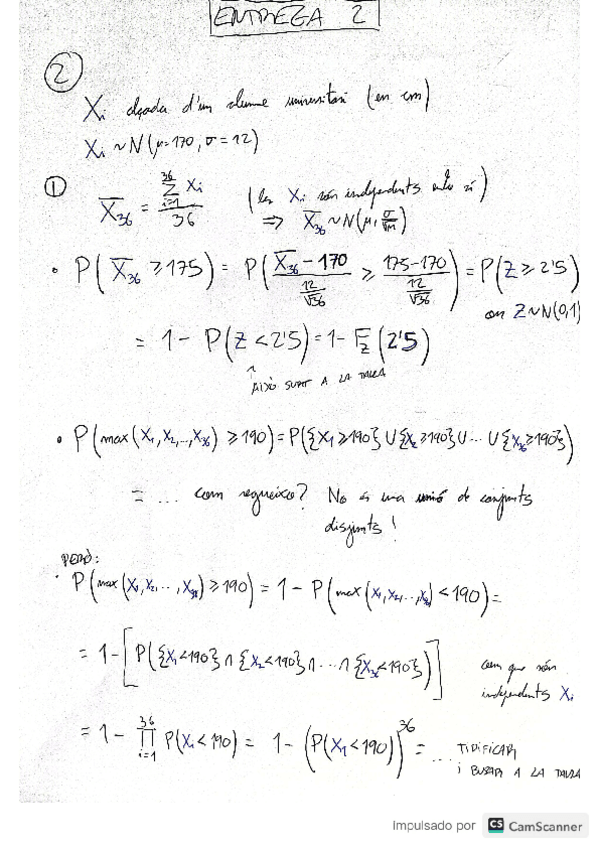 ENTREGA 2
2
Xi alçada d'un alumne universitari (en cm)
Xi ~ N(μ=170, σ=12)
① X̄36 = Σ_{i=1}^{36} Xi / 36 (les Xi són independents entre sí) ⇒ X̄36 ~ N(μ, σ/√n)
• P(X̄36 ≥ 175) = P((X̄36 - 170)/(12/√36) ≥ (175-170)/(12/√36)) = P(Z ≥ 2'5)
on Z~N(0,1)
= 1 - P(Z < 2'5) = 1 - F_Z(2'5)
AIXÒ SURT A LA TAULA
• P(max(X1, X2, ..., X36) ≥ 190) = P({X1 ≥ 190} ∪ {X2 ≥ 190} ∪ ... ∪ {X36 ≥ 190})
= ... com segueixo? No és una unió de conjunts
disjunts!
PERÒ:
• P(max(X1, X2, ..., X36) ≥ 190) = 1 - P(max(X1, X2, ..., X36) < 190) =
= 1 - [P({X1 < 190} ∩ {X2 < 190} ∩ ... ∩ {X36 < 190})] com que són
independents Xi
= 1 - ∏_{i=1}^{36} P(Xi < 190) = 1 - (P(X1 < 190))^36 = ... TIPIFICAR
i BUSCAR A LA TAULA
Impulsado por CS CamScanner